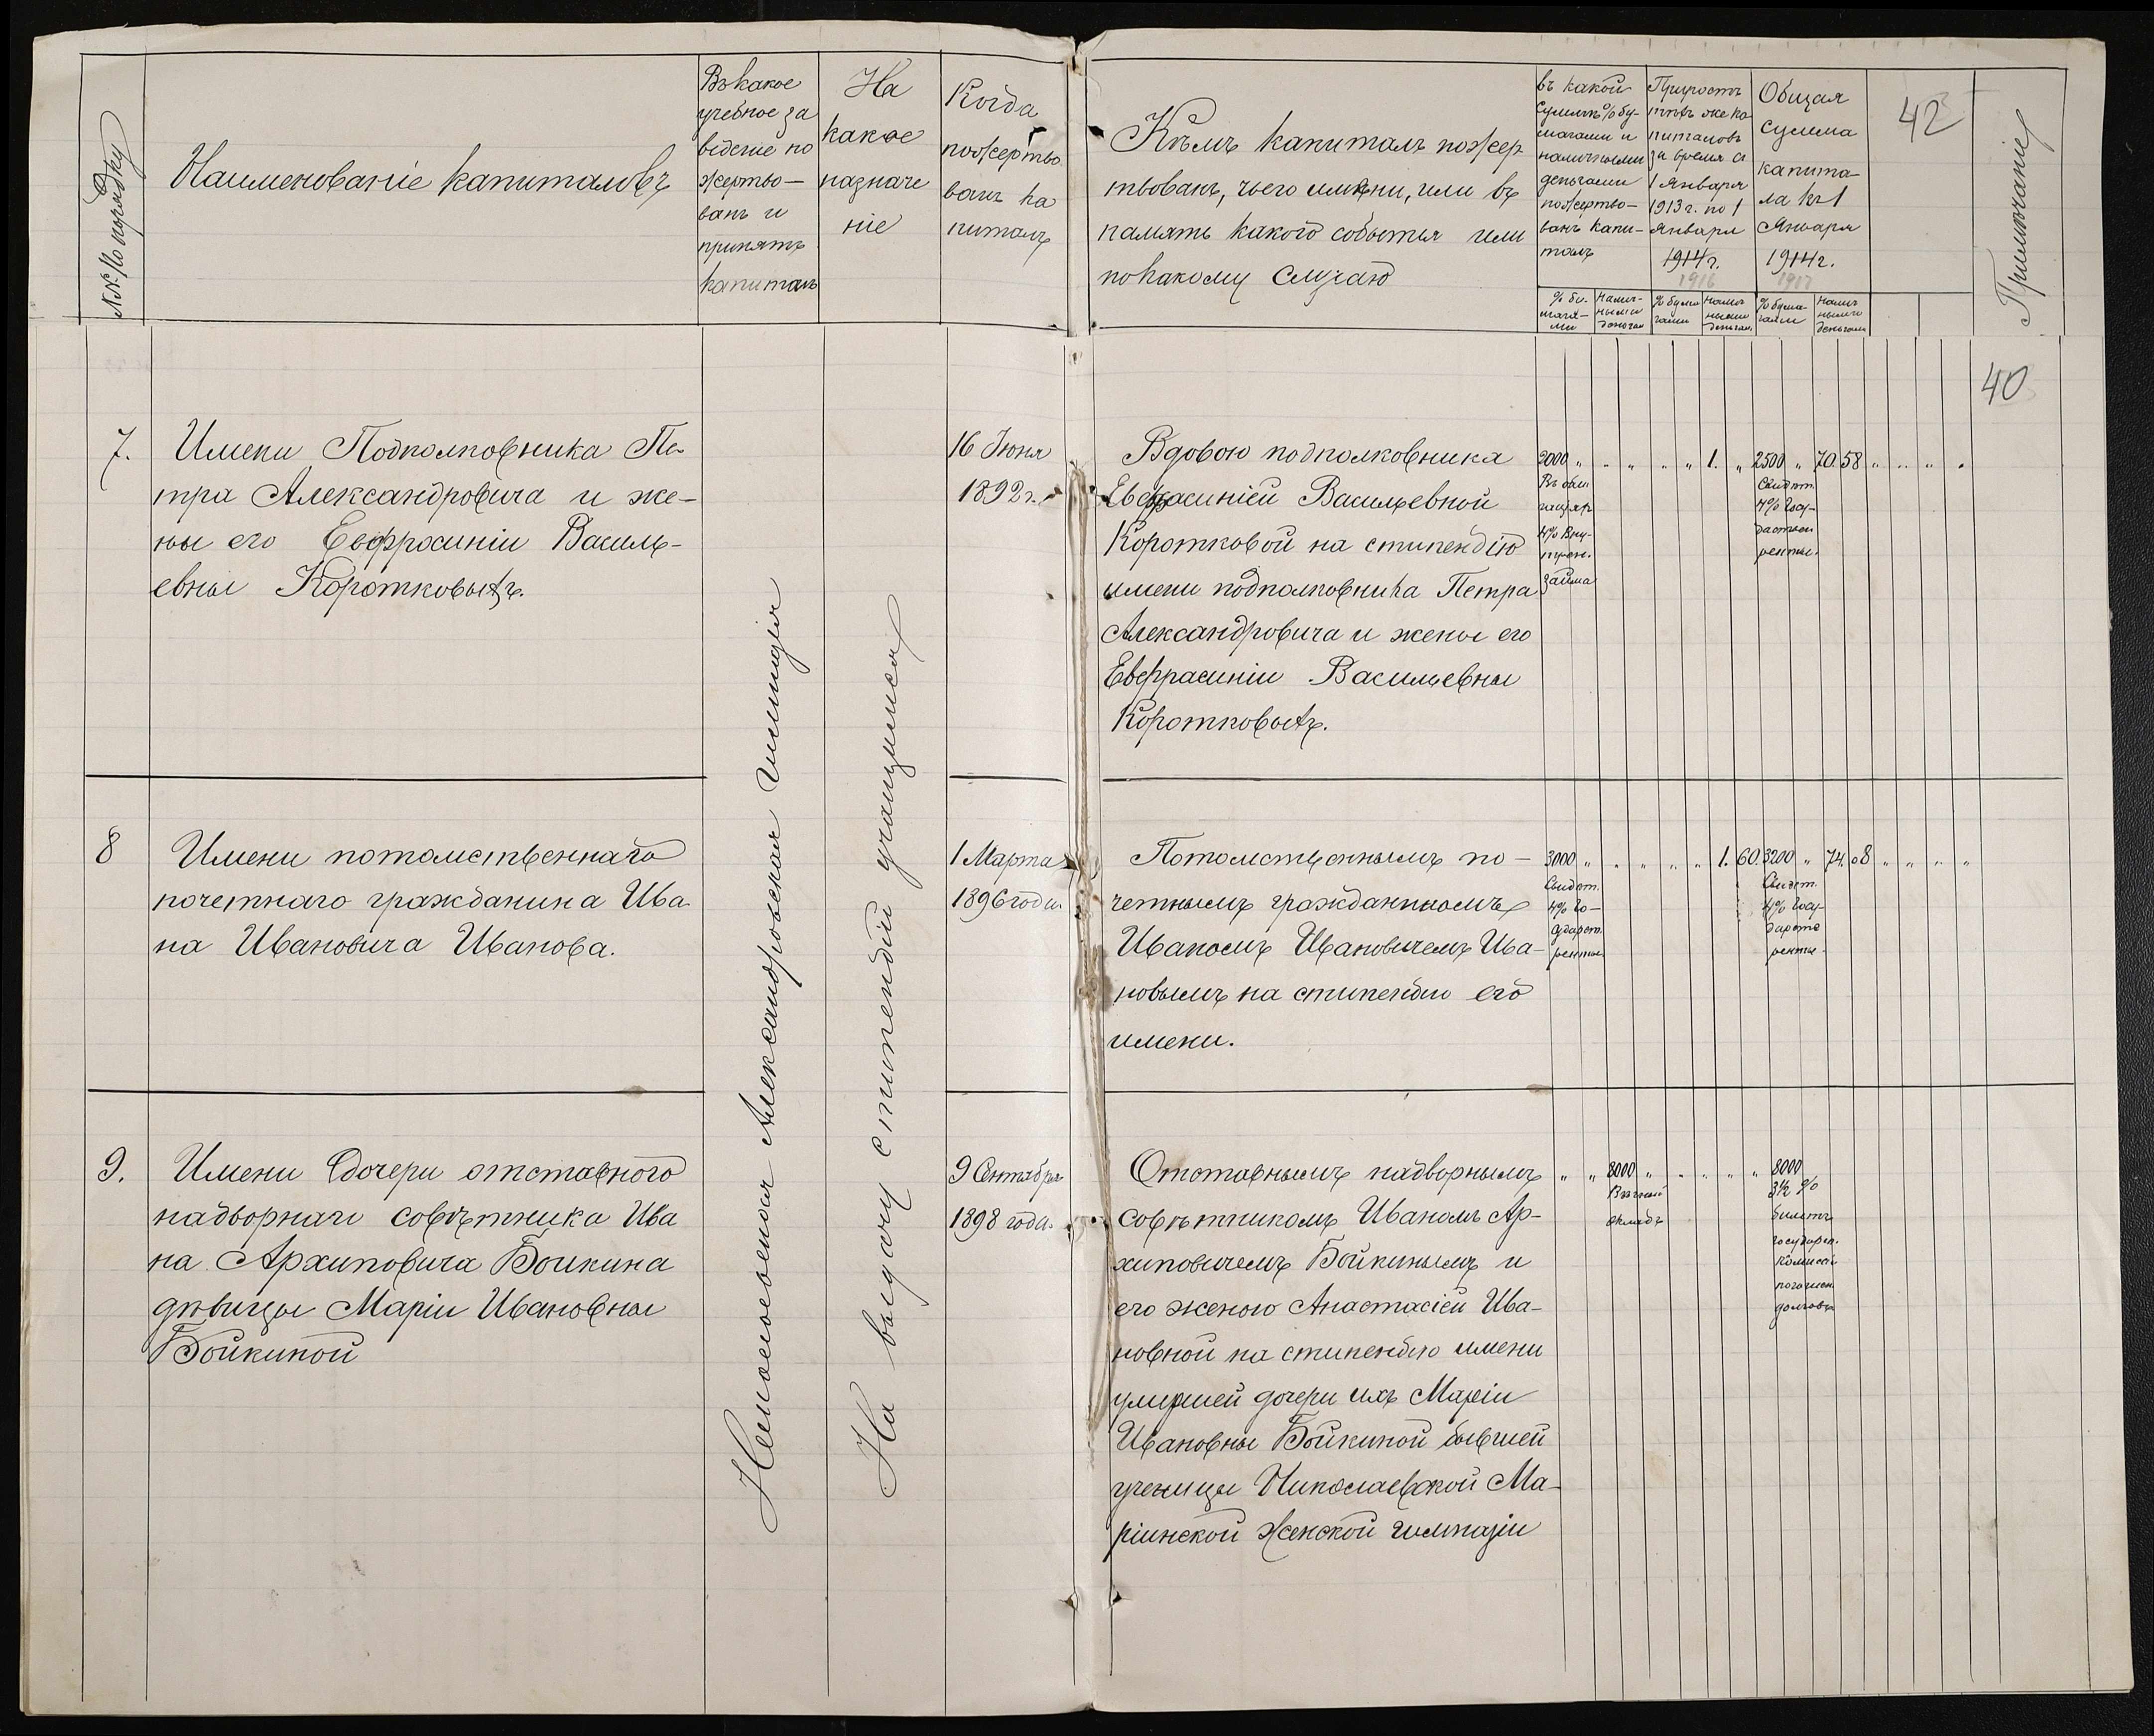 №№ по порядку
Наименованіе капиталовъ
Въ какое
учебное за
веденіе по
жертво—
ванъ и
принятъ
капиталъ
На
какое
назначе
ніе
Когда
пожертво
ванъ ка
питалъ
Кѣмъ капиталъ пожер
твованъ, чьего имени, или въ
память какого событія или
по какому случаю
въ какой
суммѣ % бу-
магами и
наличными
деньгами
пожертво—
ванъ капи-
талъ
% бу-
мага-
ми
налич-
ными
деньгам
Приростъ
тѣхъ же ка
питаловъ
за время съ
1 Января
1913 г. по 1
Января
1914 г.
1916
% бума
гами
налич
ными
деньгам
Общая
сумма
капита—
ла къ 1
Января
1914 г.
1917
% бума-
гами
налич
ными
деньгами
42
Примѣчаніе
40
7.
Имени Подполковника Пе-
тра Александровича и же-
ны его Евфросиніи Василь-
евны Коротковыхъ.
16 Іюня
1892 г.
Вдовою подполковника
Евфрасиніей Васильевной
Коротковой на стипендію
имени подполковника Петра
Александровича и жены его
Евфрасиніи Васильевны
Коротковыхъ.
2000 „ „ „ „ „ 1. „ 2500 „ 70.58 „ „ „ „
Въ обли
гаціях
4% Вну-
трен.
займа
Свидѣт.
4% Госу-
даствен
ренты.
8
Имени потомственнаго
почетнаго гражданина Ива
на Ивановича Иванова.
1 Марта
1896 года
Потомственнымъ по—
четнымъ гражданиномъ
Иваномъ Ивановичемъ Ива-
новымъ на стипендію его
имени.
3000 „ „ „ „ „ 1. 60. 3200 „ 74.08 „ „ „ „
Свидѣт.
4% Го—
сударст.
ренты.
Свидѣт.
4% Госу-
дарств
ренты.
9.
Имени дочери отставного
надворнаго совѣтника Ива
на Архиповича Бойкина
дѣвицы Маріи Ивановны
Бойкиной
9 Сентября
1898 года.
Отставнымъ надворнымъ
совѣтникомъ Иваномъ Ар-
хиповичемъ Бойкинымъ и
его женою Анастасіей Ива-
новной на стипендію имени
умершей дочери ихъ Маріи
Ивановны Бойкиной бывшей
ученицы Николаевской Ма-
ріинской Женской гимназіи
„ „ 8000 „ „ „ „ „ 8000
Вѣчный
вкладъ
3½ %
билетъ
государст.
комиссіи
погашен
долговъ
Николаевская Александровская гимназія
На выдачу стипендій учащимся